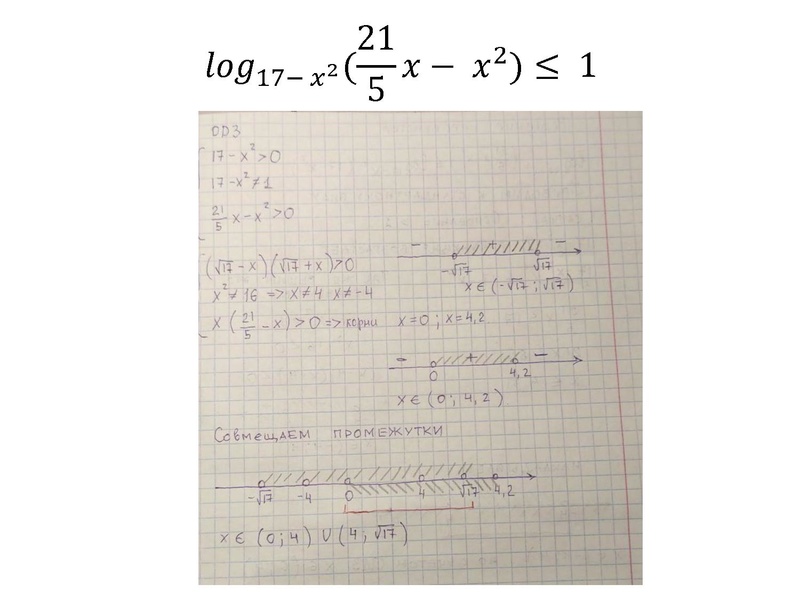 log₁₇₋ₓ²(21/5 x − x²) ≤ 1
ОДЗ
17 - x² > 0
17 - x² ≠ 1
21/5 x - x² > 0
(√17 - x)(√17 + x) > 0
- + -
-√17 √17
x ∈ (-√17 ; √17)
x² ≠ 16 => x ≠ 4 x ≠ -4
x (21/5 - x) > 0 => корни x = 0 ; x = 4,2
- + -
0 4,2
x ∈ (0 ; 4,2)
Совмещаем промежутки
-√17 -4 0 4 √17 4,2
x ∈ (0 ; 4) ∪ (4 ; √17)